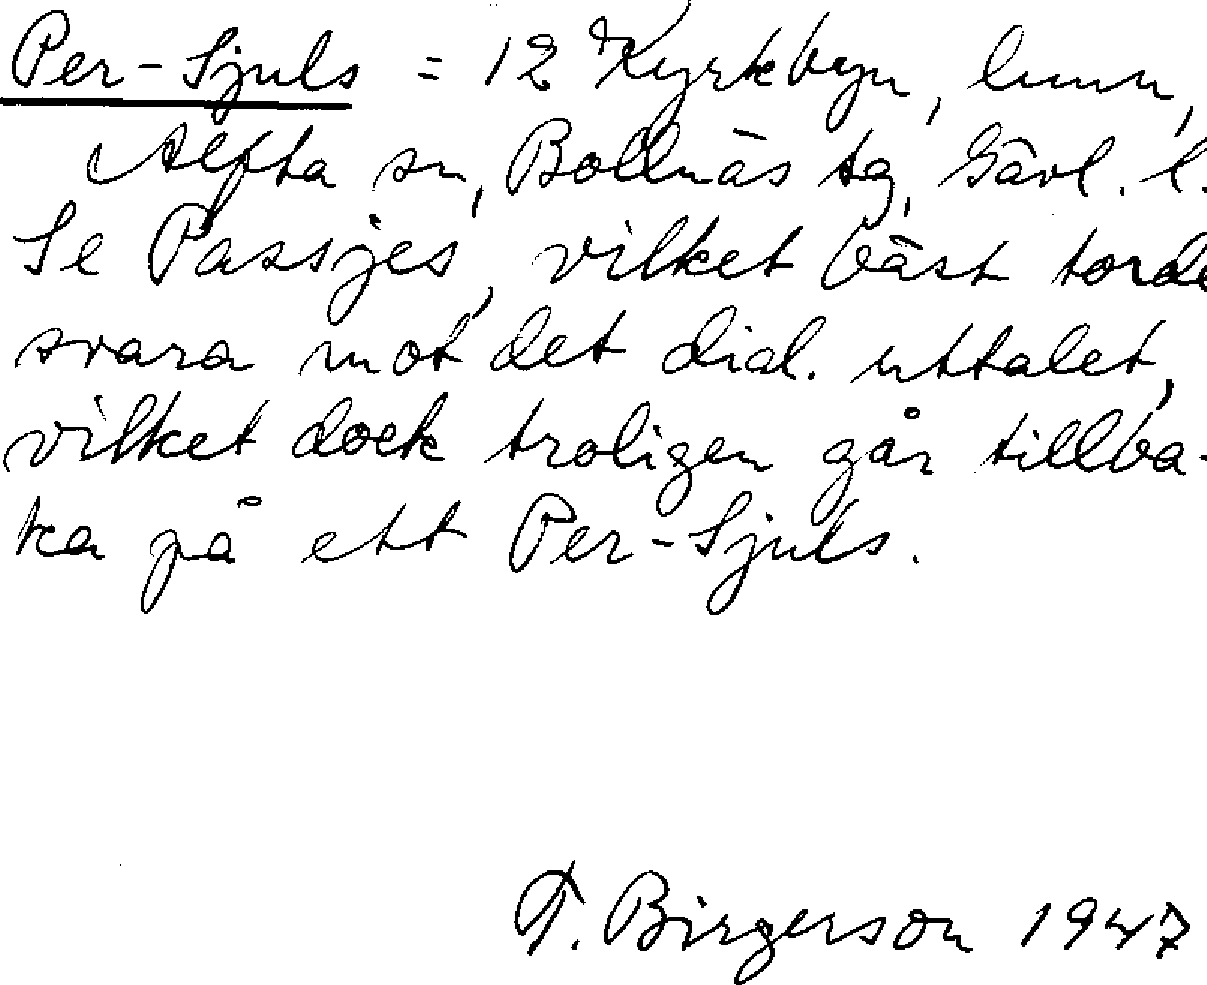 Per-Sjuls = 12 Kyrkbyn, hmn,
Alfta sn, Bollnäs tg, Gävl. l.
Se Passjes, vilket bäst torde
svara mot det dial. uttalet,
vilket dock troligen går tillba-
ka på ett Per-Sjuls.
T. Birgerson 1947